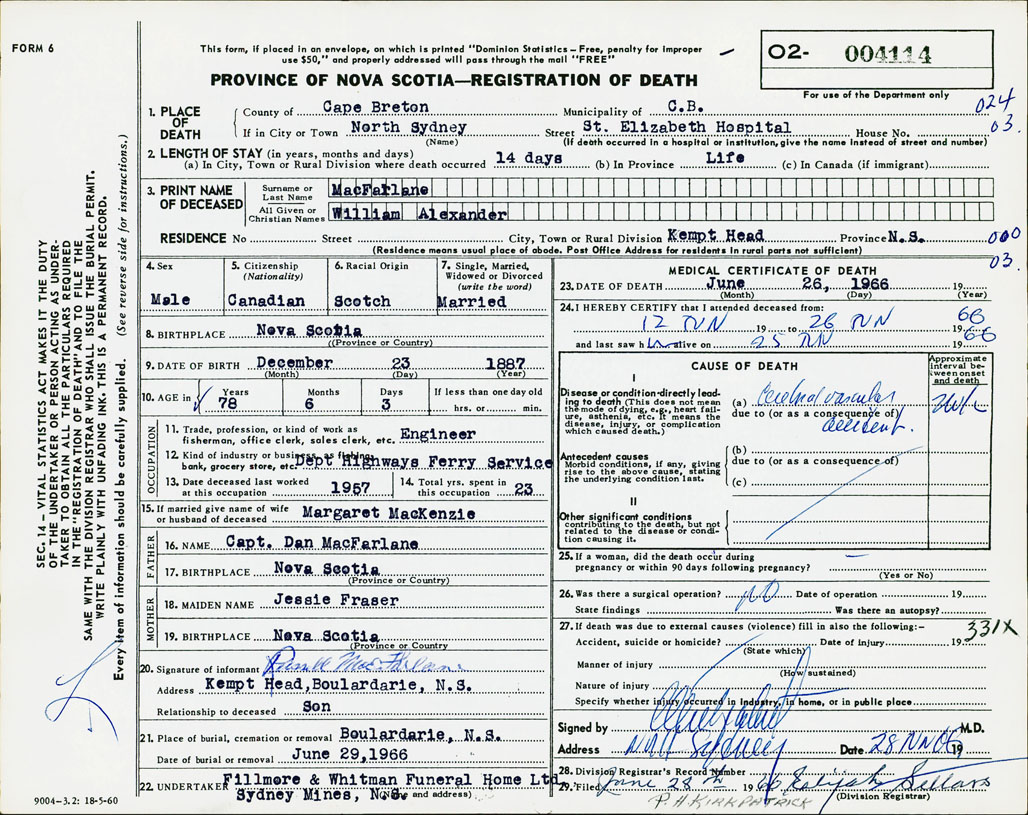 FORM 6
This form, if placed in an envelope, on which is printed "Dominion Statistics – Free, penalty for improper
use $50," and properly addressed will pass through the mail "FREE"
PROVINCE OF NOVA SCOTIA—REGISTRATION OF DEATH
O2- 004114
For use of the Department only
SEC. 14 – VITAL STATISTICS ACT MAKES IT THE DUTY
OF THE UNDERTAKER OR PERSON ACTING AS UNDER-
TAKER TO OBTAIN ALL THE PARTICULARS REQUIRED
IN THE "REGISTRATION OF DEATH" AND TO FILE THE
SAME WITH THE DIVISION REGISTRAR WHO SHALL ISSUE THE BURIAL PERMIT.
WRITE PLAINLY WITH UNFADING INK. THIS IS A PERMANENT RECORD.
Every item of information should be carefully supplied. (See reverse side for instructions.)
1. PLACE OF DEATH
County of Cape Breton Municipality of C.B. 024
If in City or Town North Sydney Street St. Elizabeth Hospital House No. 03.
(Name) (If death occurred in a hospital or institution, give the name instead of street and number)
2. LENGTH OF STAY (in years, months and days)
(a) In City, Town or Rural Division where death occurred 14 days (b) In Province Life (c) In Canada (if immigrant)
3. PRINT NAME OF DECEASED
Surname or Last Name MacFarlane
All Given or Christian Names William Alexander
RESIDENCE No Street City, Town or Rural Division Kempt Head Province N.S. 000
(Residence means usual place of abode. Post Office Address for residents in rural parts not sufficient) 03.
4. Sex Male
5. Citizenship (Nationality) Canadian
6. Racial Origin Scotch
7. Single, Married, Widowed or Divorced (write the word) Married
8. BIRTHPLACE Nova Scotia
(Province or Country)
9. DATE OF BIRTH December 23 1887
(Month) (Day) (Year)
10. AGE in Years 78 Months 6 Days 3 If less than one day old hrs. or min.
OCCUPATION
11. Trade, profession, or kind of work as
fisherman, office clerk, sales clerk, etc. Engineer
12. Kind of industry or business, as fishing,
bank, grocery store, etc. Dept Highways Ferry Service
13. Date deceased last worked at this occupation 1957
14. Total yrs. spent in this occupation 23
15. If married give name of wife or husband of deceased Margaret MacKenzie
FATHER
16. NAME Capt. Dan MacFarlane
17. BIRTHPLACE Nova Scotia
(Province or Country)
MOTHER
18. MAIDEN NAME Jessie Fraser
19. BIRTHPLACE Nova Scotia
(Province or Country
20. Signature of informant MacFarlane
Address Kempt Head, Boulardarie, N.S.
Relationship to deceased Son
21. Place of burial, cremation or removal Boulardarie, N.S.
Date of burial or removal June 29, 1966
22. UNDERTAKER Fillmore & Whitman Funeral Home Ltd.
Sydney Mines, N.S. (Name and address)
9004-3.2: 18-5-60
MEDICAL CERTIFICATE OF DEATH
23. DATE OF DEATH June 26, 1966 19
(Month) (Day) (Year)
24. I HEREBY CERTIFY that I attended deceased from:
12 JUN 19 to 26 JUN 19 66
and last saw him alive on 25 JUN 19 66
CAUSE OF DEATH
Approximate interval between onset and death
I
Disease or condition directly lead-
ing to death (This does not mean
the mode of dying, e.g., heart fail-
ure, asthenia, etc. It means the
disease, injury, or complication
which caused death.)
(a) Cerebral vascular
due to (or as a consequence of)
accident.
2 wk
Antecedent causes
Morbid conditions, if any, giving
rise to the above cause, stating
the underlying condition last.
(b)
due to (or as a consequence of)
(c)
II
Other significant conditions
contributing to the death, but not
related to the disease or condi-
tion causing it.
25. If a woman, did the death occur during
pregnancy or within 90 days following pregnancy? —
(Yes or No)
26. Was there a surgical operation? NO Date of operation 19
State findings Was there an autopsy?
27. If death was due to external causes (violence) fill in also the following:– 331X
Accident, suicide or homicide? Date of injury 19
(State which)
Manner of injury
(How sustained)
Nature of injury
Specify whether injury occurred in industry, in home, or in public place
Signed by M.D.
Address North Sydney Date 28 JUN 66 19
28. Division Registrar's Record Number
29. Filed June 28th 1966 Sellars
(Division Registrar)
P. H. KIRKPATRICK